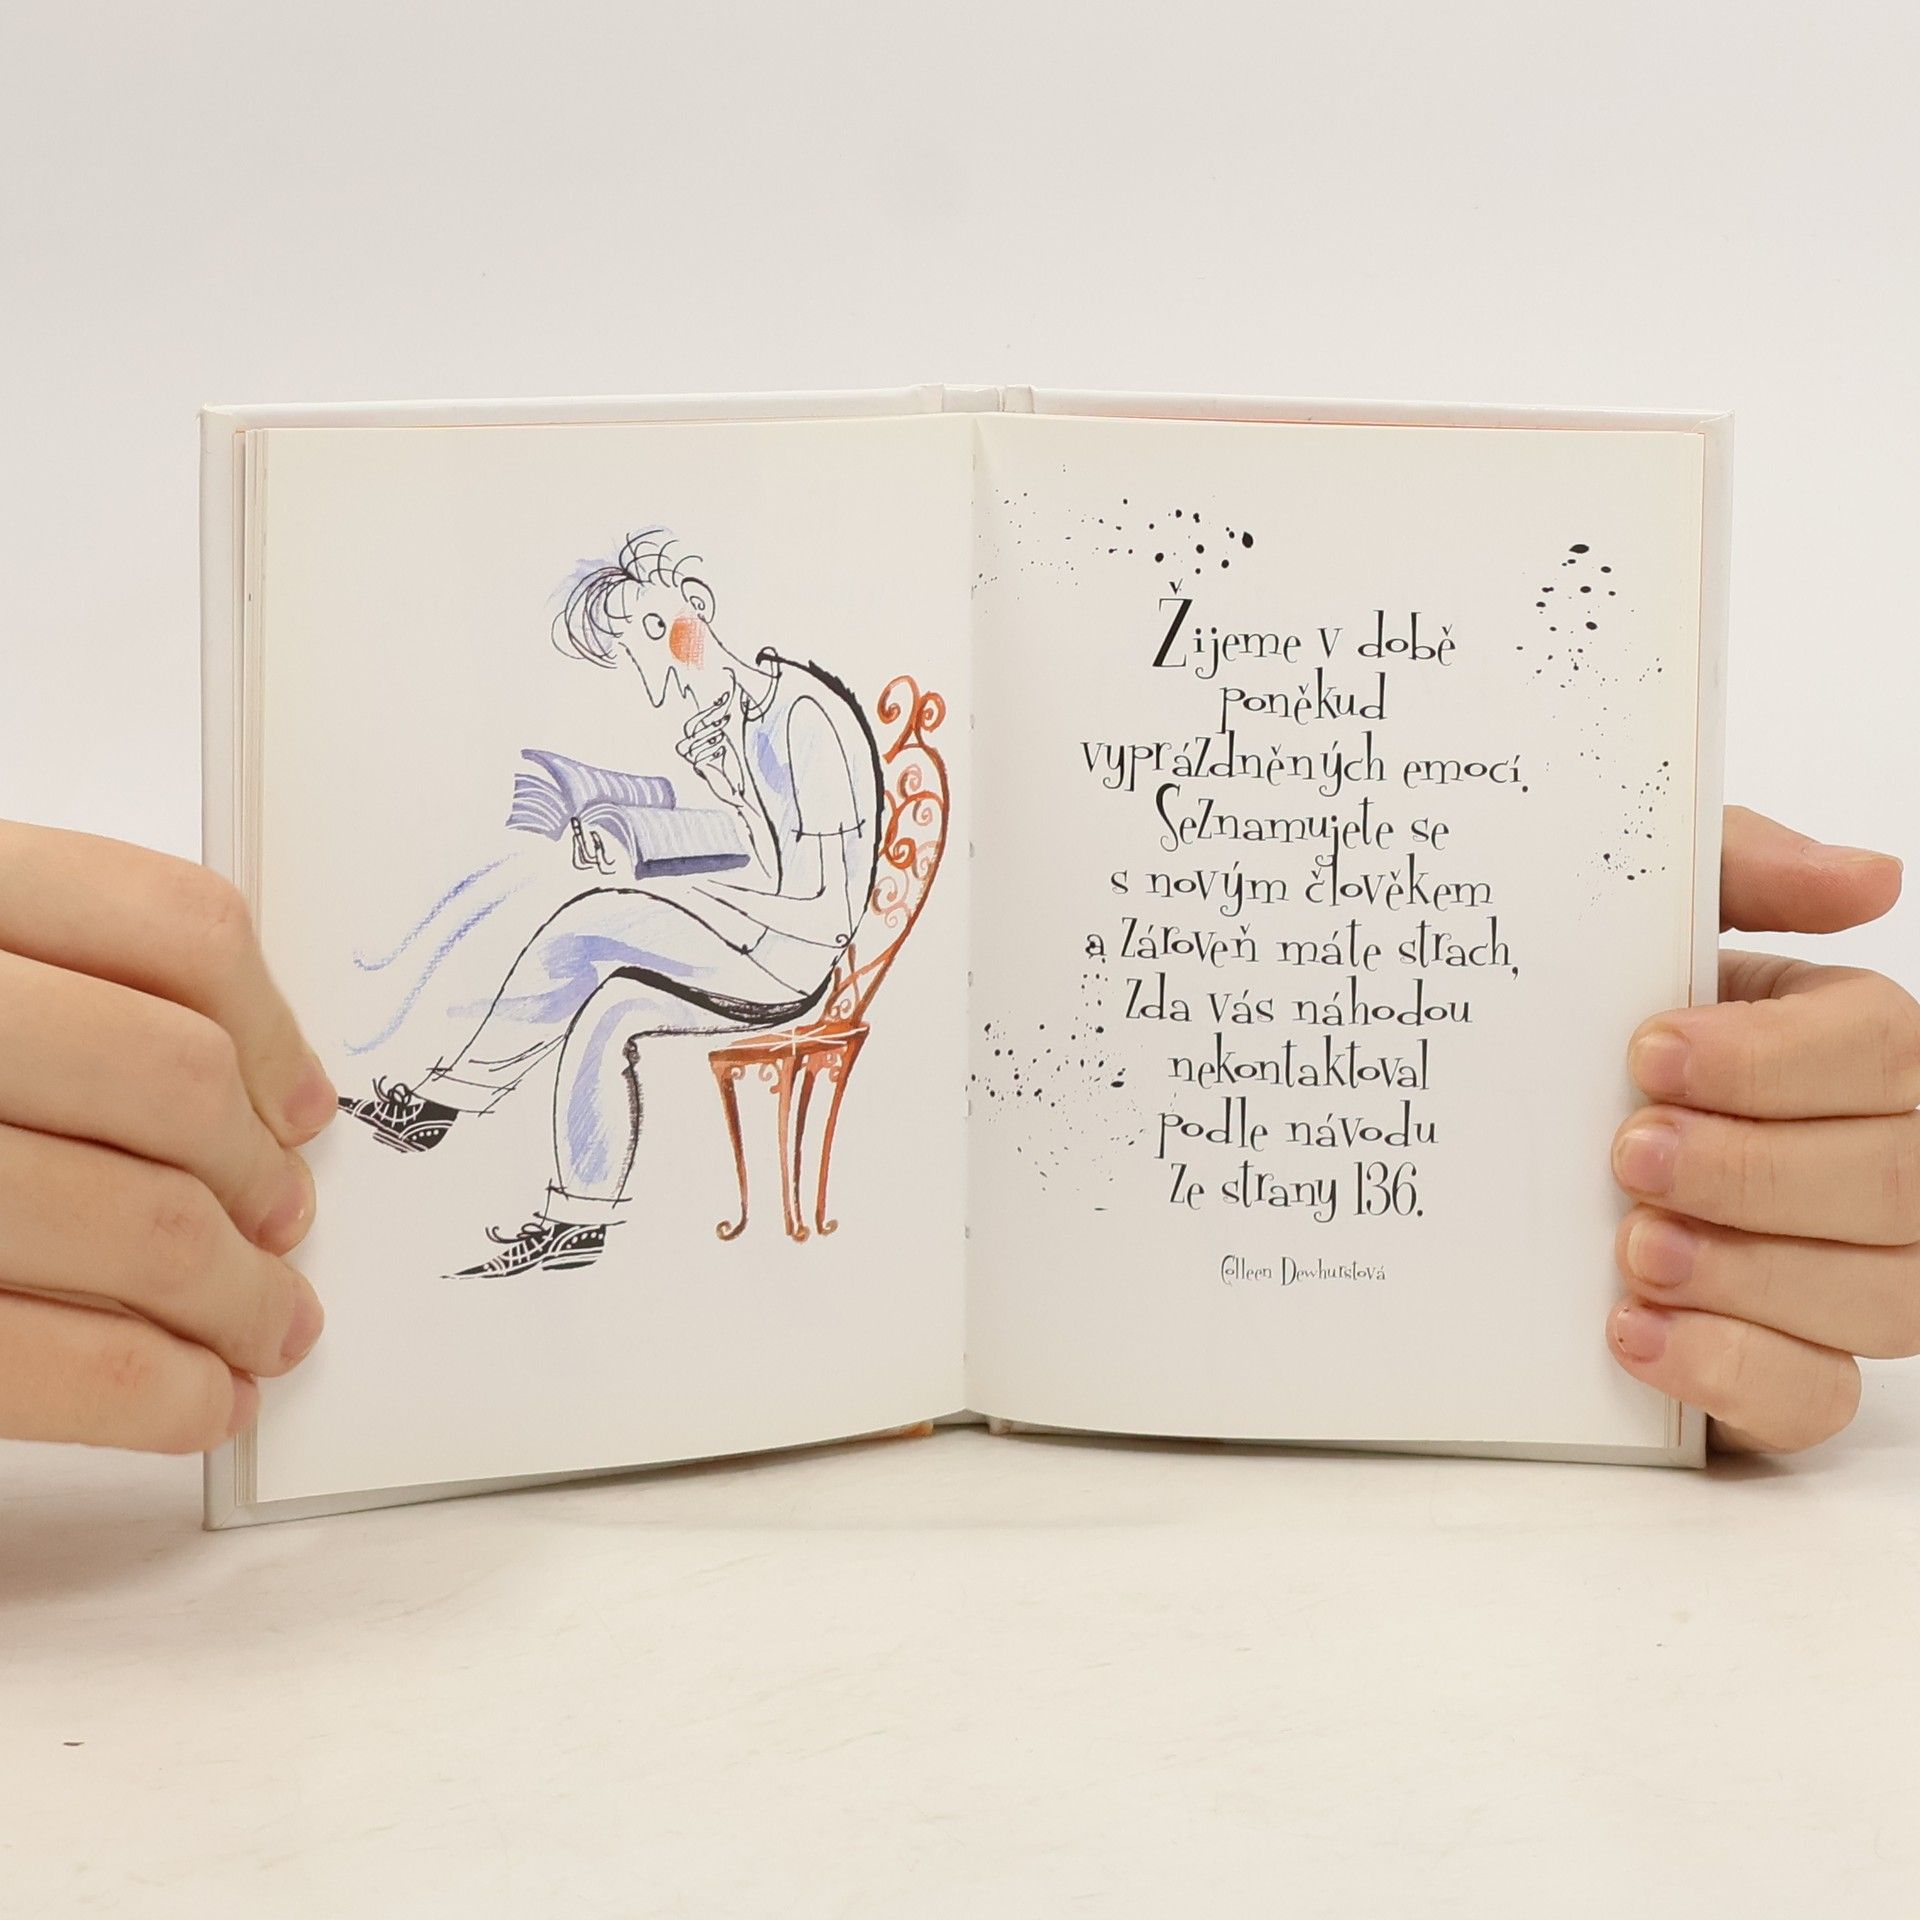 Žijeme v době
poněkud
vyprázdněných emocí.
Seznamujete se
s novým člověkem
a zároveň máte strach,
zda vás náhodou
nekontaktoval
podle návodu
ze strany 136.
Colleen Dewhurstová